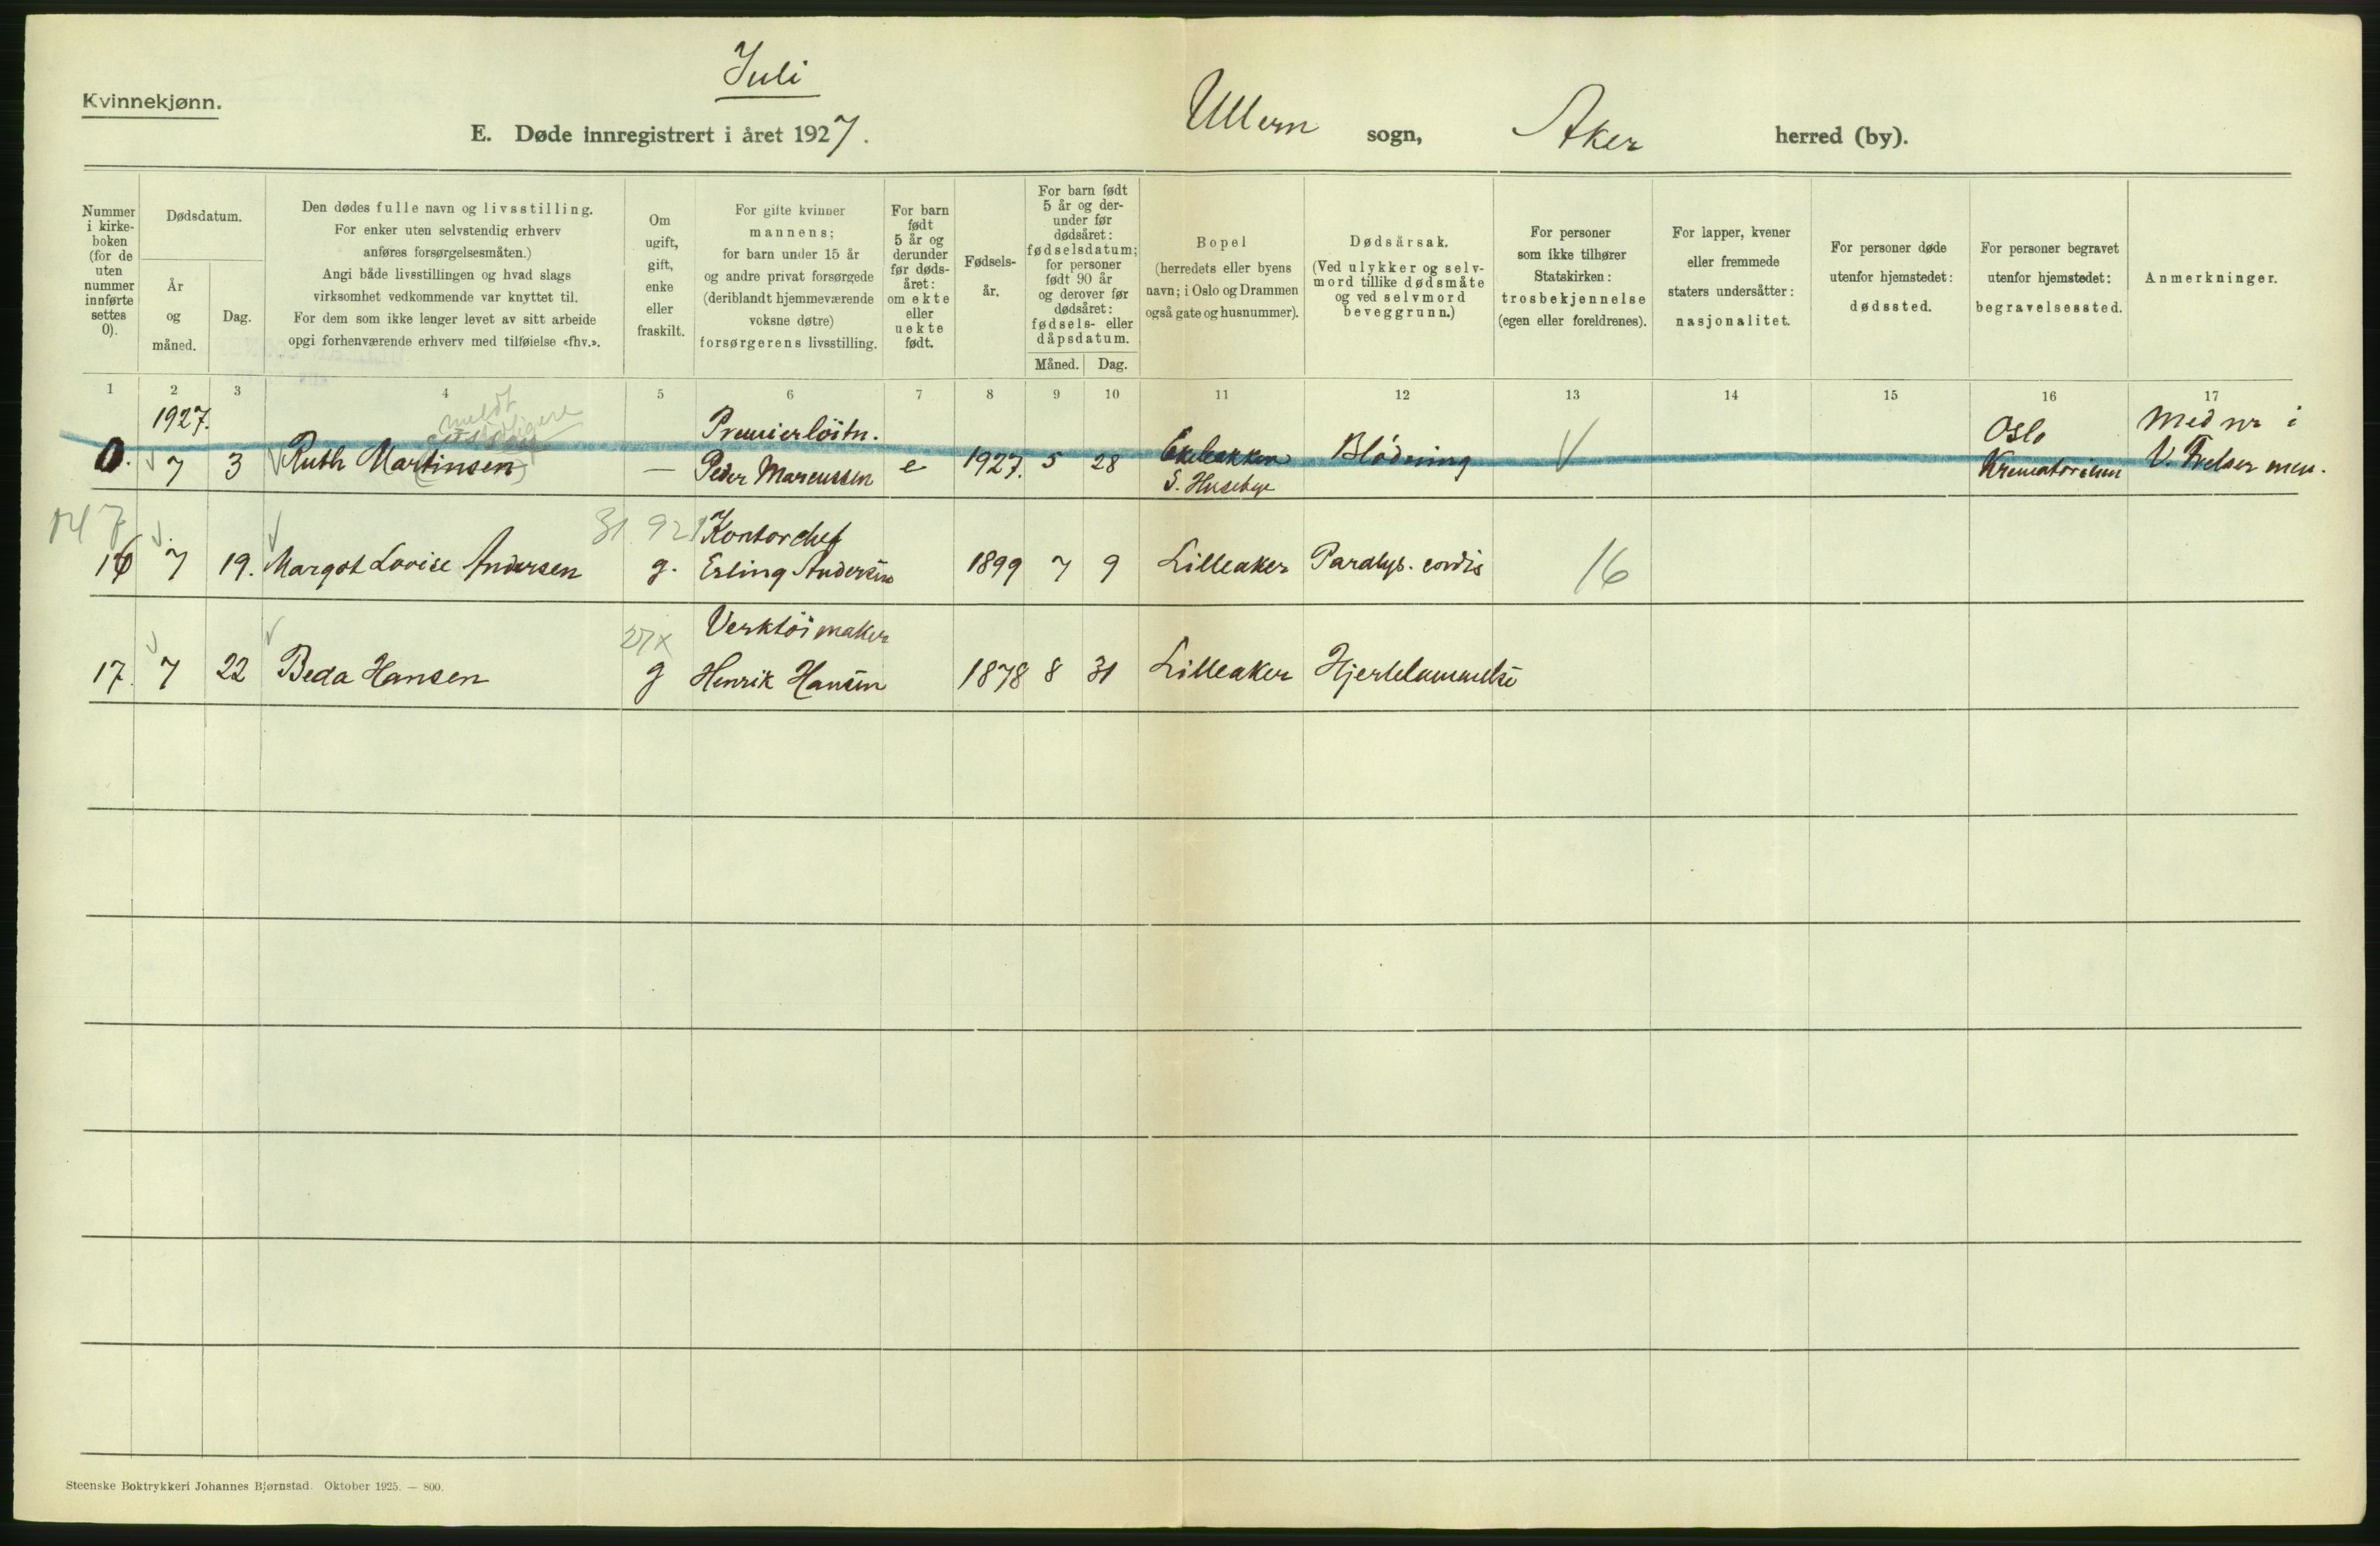 Juli
Kvinnekjønn.
E. Døde innregistrert i året 1927. Ullern sogn, Aker herred (by).
Nummer i kirke-boken (for de uten nummer innførte settes 0).
Dødsdatum.
År og måned.
Dag.
Den dødes fulle navn og livsstilling.
For enker uten selvstendig erhverv
anføres forsørgelsesmåten.)
Angi både livsstillingen og hvad slags
virksomhet vedkommende var knyttet til.
For dem som ikke lenger levet av sitt arbeide
opgi forhenværende erhverv med tilføielse «fhv.».
Om ugift, gift, enke eller fraskilt.
For gifte kvinner
mannens;
for barn under 15 år
og andre privat forsørgede
(deriblandt hjemmeværende
voksne døtre)
forsørgerens livsstilling.
For barn født 5 år og derunder før døds-året: om ekte eller uekte født.
Fødsels-år.
For barn født 5 år og der-under før dødsåret: fødselsdatum; for personer født 90 år og derover før dødsåret: fødsels- eller dåpsdatum.
Måned. Dag.
Bopel
(herredets eller byens
navn; i Oslo og Drammen
også gate og husnummer).
Dødsårsak.
(Ved ulykker og selv-
mord tillike dødsmåte
og ved selvmord
beveggrunn.)
For personer
som ikke tilhører
Statskirken:
trosbekjennelse
(egen eller foreldrenes).
For lapper, kvener
eller fremmede
staters undersåtter:
nasjonalitet.
For personer døde
utenfor hjemstedet:
dødssted.
For personer begravet
utenfor hjemstedet:
begravelsessted.
Anmerkninger.
1 2 3 4 5 6 7 8 9 10 11 12 13 14 15 16 17
1927. meldt tidligere Premierløitn. Oslo Med nr i
0. 7 3 Ruth Martinsen — Peder Marcussen e 1927. 5 28 Ekebakken Blødning Krematorium V. Frelser men.
S. Husebye
147 31 921 Kontorchef
16 7 19. Margot Lovise Andersen g. Erling Andersen 1899 7 9 Lilleaker Paralys. cordis 16
27x Verktøimaker
17. 7 22 Beda Hansen g Henrik Hansen 1878 8 31 Lilleaker Hjertelammelse
Steenske Boktrykkeri Johannes Bjørnstad. Oktober 1925. — 800.